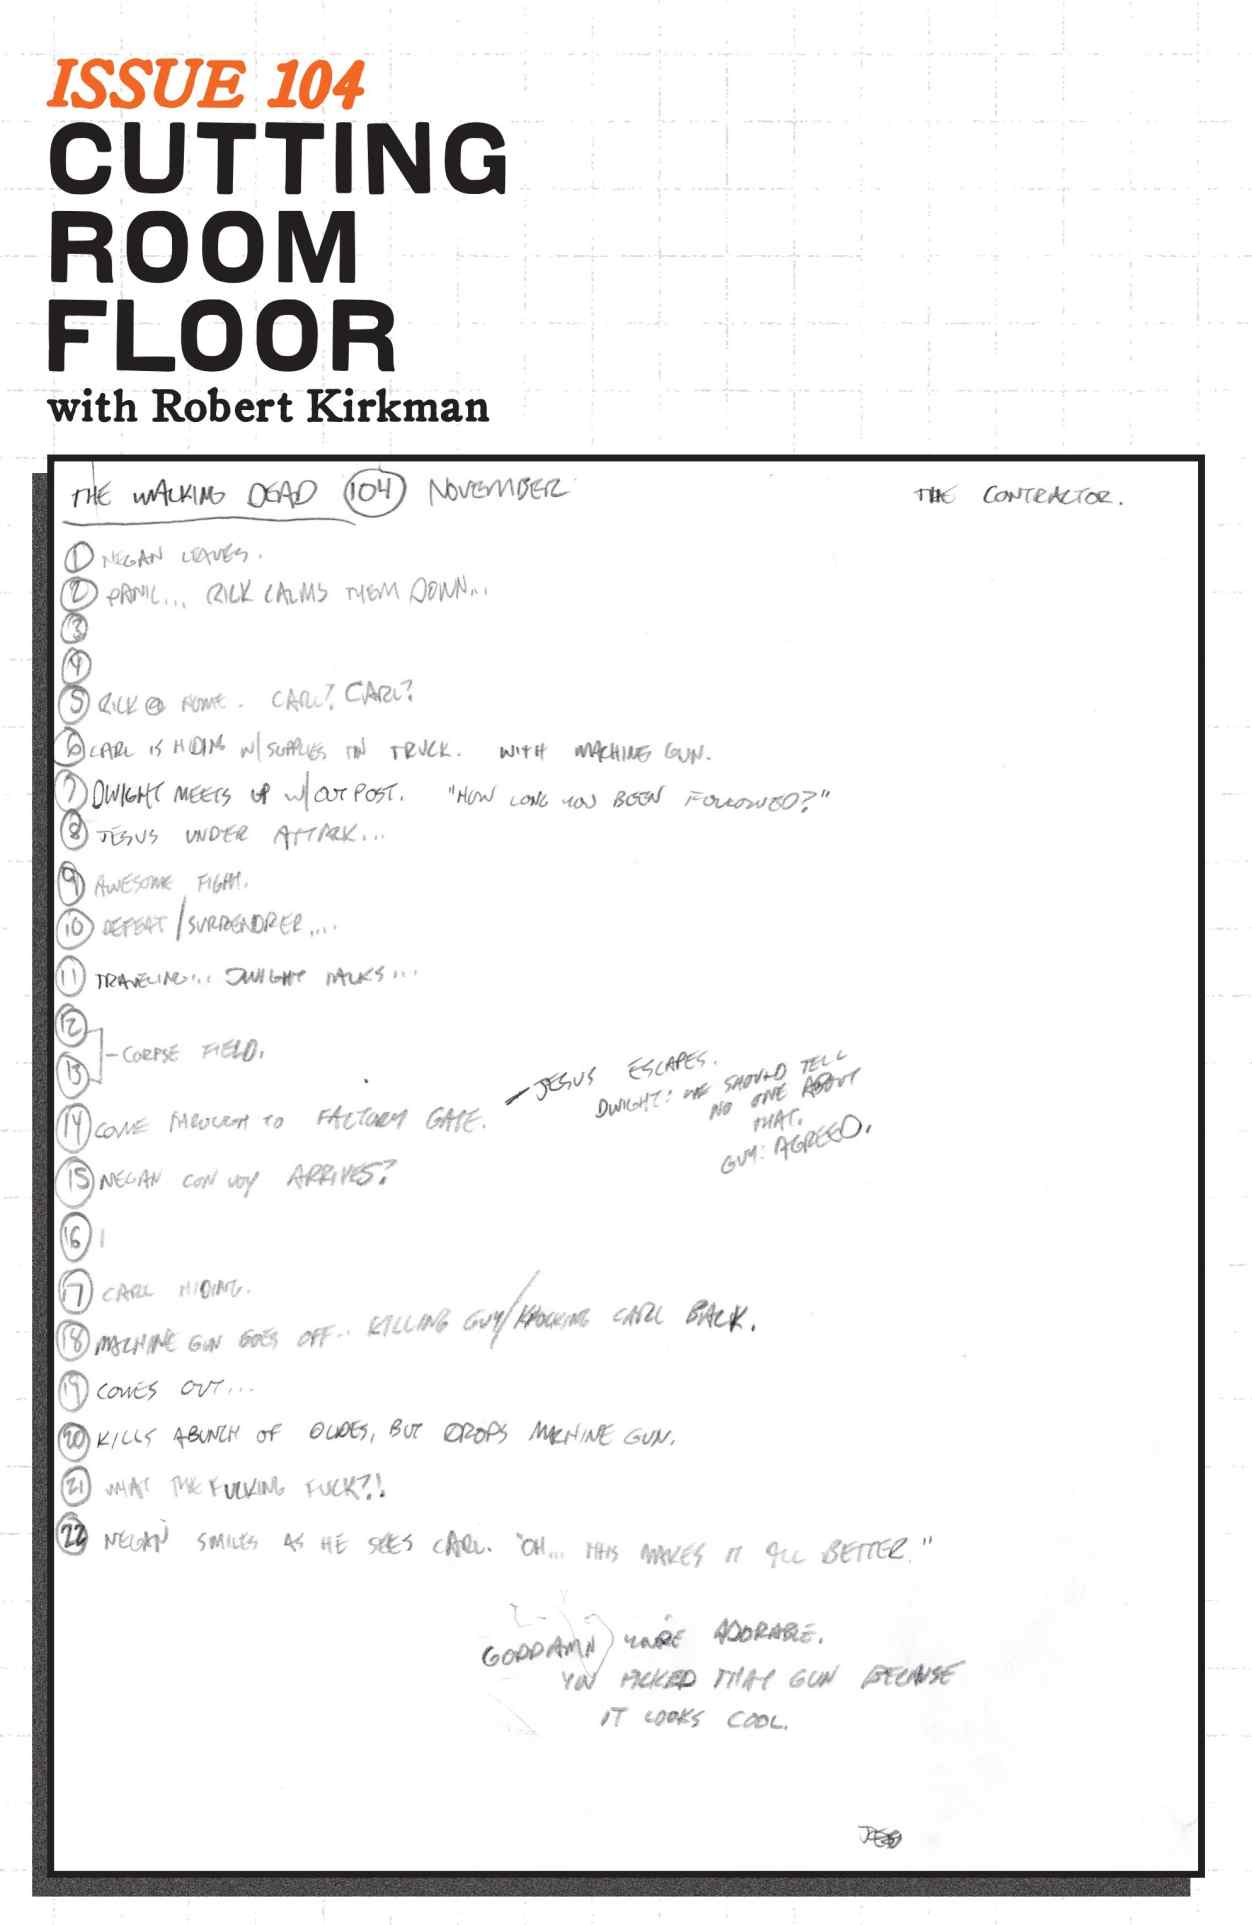 ISSUE 104
CUTTING
ROOM
FLOOR
with Robert Kirkman
THE WALKING DEAD 104 NOVEMBER THE CONTRACTOR.
1 NEGAN LEAVES.
2 PANIC... RICK CALMS THEM DOWN...
3
4
5 RICK @ HOME. CARL? CARL?
6 CARL IS HIDING W/SUPPLIES IN TRUCK. WITH MACHINE GUN.
7 DWIGHT MEETS UP W/OUTPOST. "HOW LONG YOU BEEN FOLLOWED?"
8 JESUS UNDER ATTACK...
9 AWESOME FIGHT.
10 DEFEAT/SURRENDRER....
11 TRAVELING... DWIGHT TALKS...
12
13 - CORPSE FIELD.
14 COME THROUGH TO FACTORY GATE.
- JESUS ESCAPES.
DWIGHT: WE SHOULD TELL
NO ONE ABOUT
THAT.
GUY: AGREED.
15 NEGAN CONVOY ARRIVES?
16
17 CARL HIDING.
18 MACHINE GUN GOES OFF... KILLING GUY/KNOCKING CARL BACK.
19 COMES OUT...
20 KILLS ABUNCH OF DUDES, BUT DROPS MACHINE GUN.
21 WHAT THE FUCKING FUCK?!
22 NEGAN SMILES AS HE SEES CARL. "OH... THIS MAKES IT ALL BETTER."
GODDAMN YOU'RE ADORABLE.
YOU PICKED THAT GUN BECAUSE
IT LOOKS COOL.